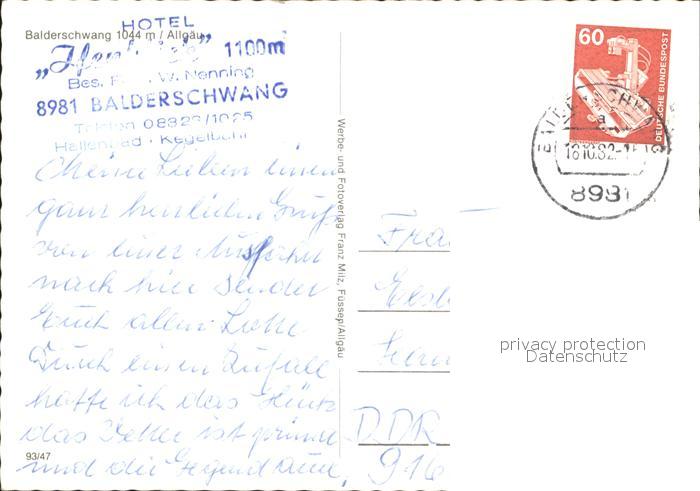 HOTEL
Balderschwang 1044 m / Allgäu
1100m
Bes. W. Nenning
8981 BALDERSCHWANG
Telefon 08328/1025
Hallenbad · Kegelbahn
Meine Lieben einen
ganz herzlichen Gruß
von einer Ausfahrt
nach hier sendet
Euch allen Lotte
Durch einen Zufall
hatte ich das Glück
das Wetter ist prima
und die Gegend auch.
93/47
Werbe- und Fotoverlag Franz Milz, Füssen/Allgäu
60
DEUTSCHE BUNDESPOST
18.10.82
8981
DDR
916
privacy protection
Datenschutz